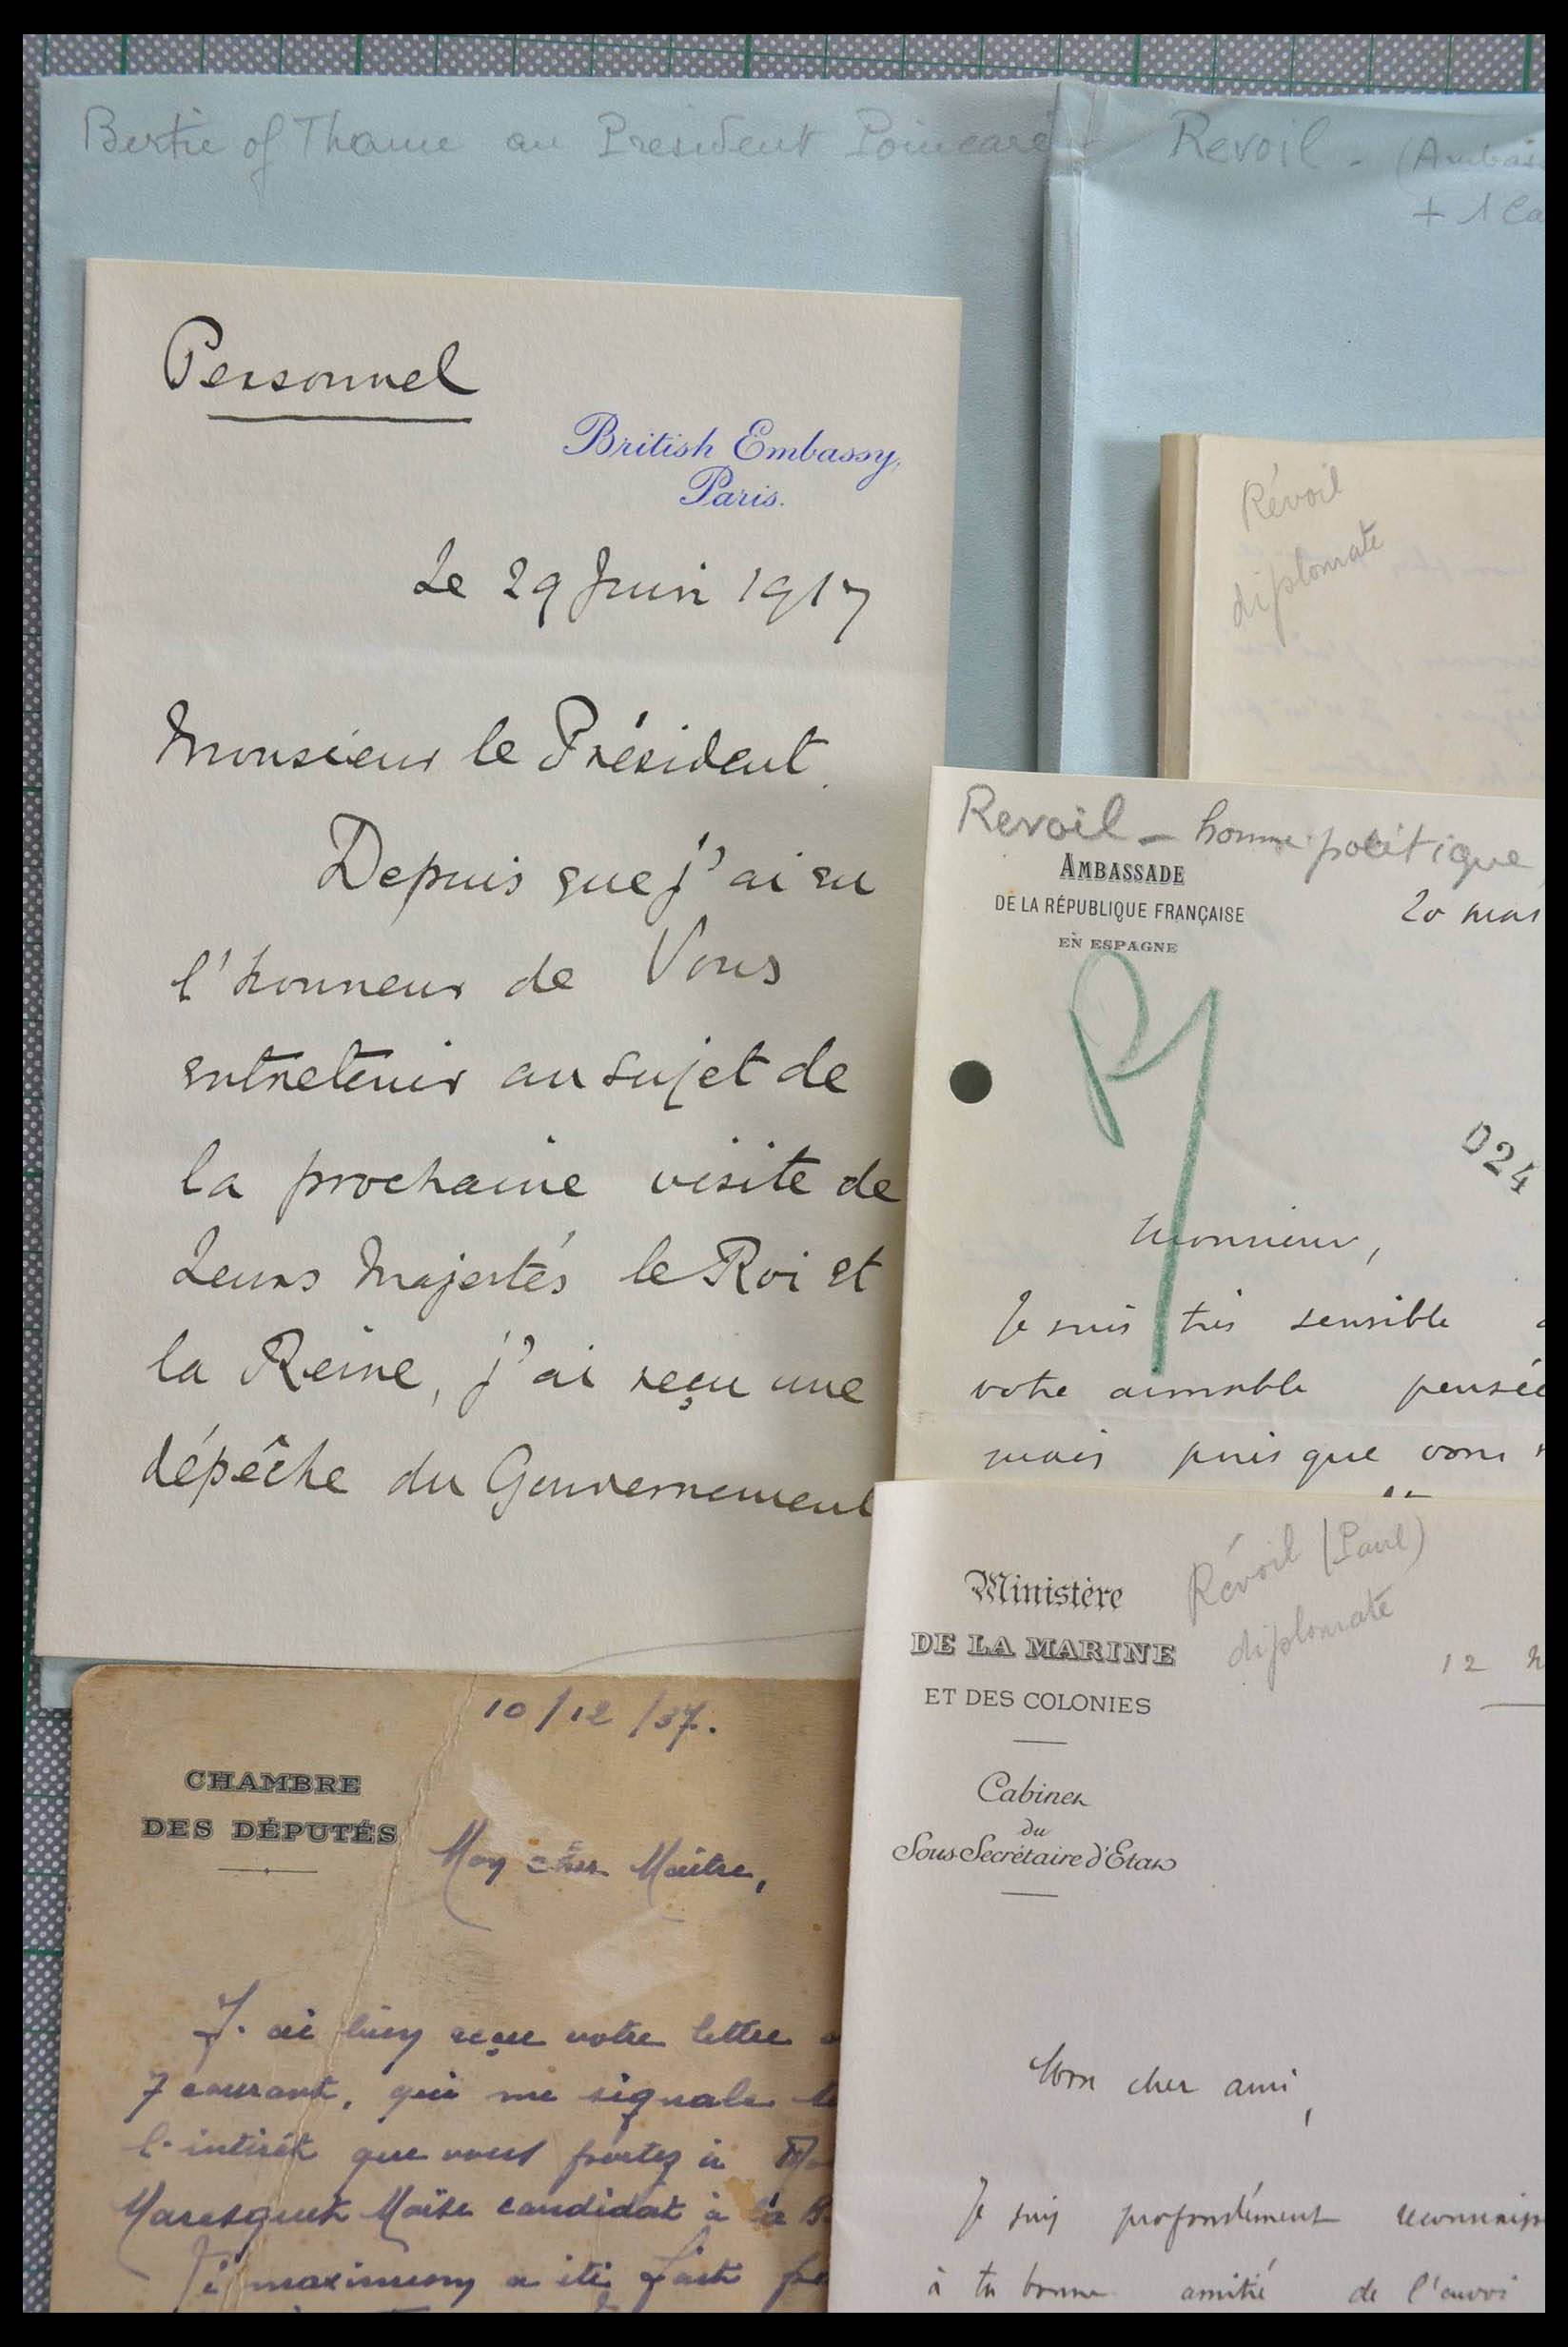 Bertie of Thame au President Poincaré
Revoil - (Ambas
+ 1 Ca
Personnel
British Embassy,
Paris.
Le 29 Juin 1917
Monsieur le Président
Depuis que j'ai eu
l'honneur de Vous
entretenir au sujet de
la prochaine visite de
Leurs Majestés le Roi et
la Reine, j'ai reçu une
dépêche du Gouvernement
Révoil
diplomate
Revoil - homme politique
AMBASSADE
DE LA RÉPUBLIQUE FRANÇAISE
EN ESPAGNE
20 mar
024
Monsieur,
Je suis très sensible
votre aimable pensée
mais puisque vous
Ministère
DE LA MARINE
ET DES COLONIES
Révoil (Paul)
diplomate
12
Cabinet
du
Sous Secrétaire d'Etat
Mon cher ami,
Je suis profondément reconnaiss
à ta bonne amitié de l'envoi
10/12/37.
CHAMBRE
DES DÉPUTÉS
Mon cher Maître,
J'ai bien reçu votre lettre
7 courant, qui me signale
l'intérêt que vous portez à
candidat à la B
maximum a été fait